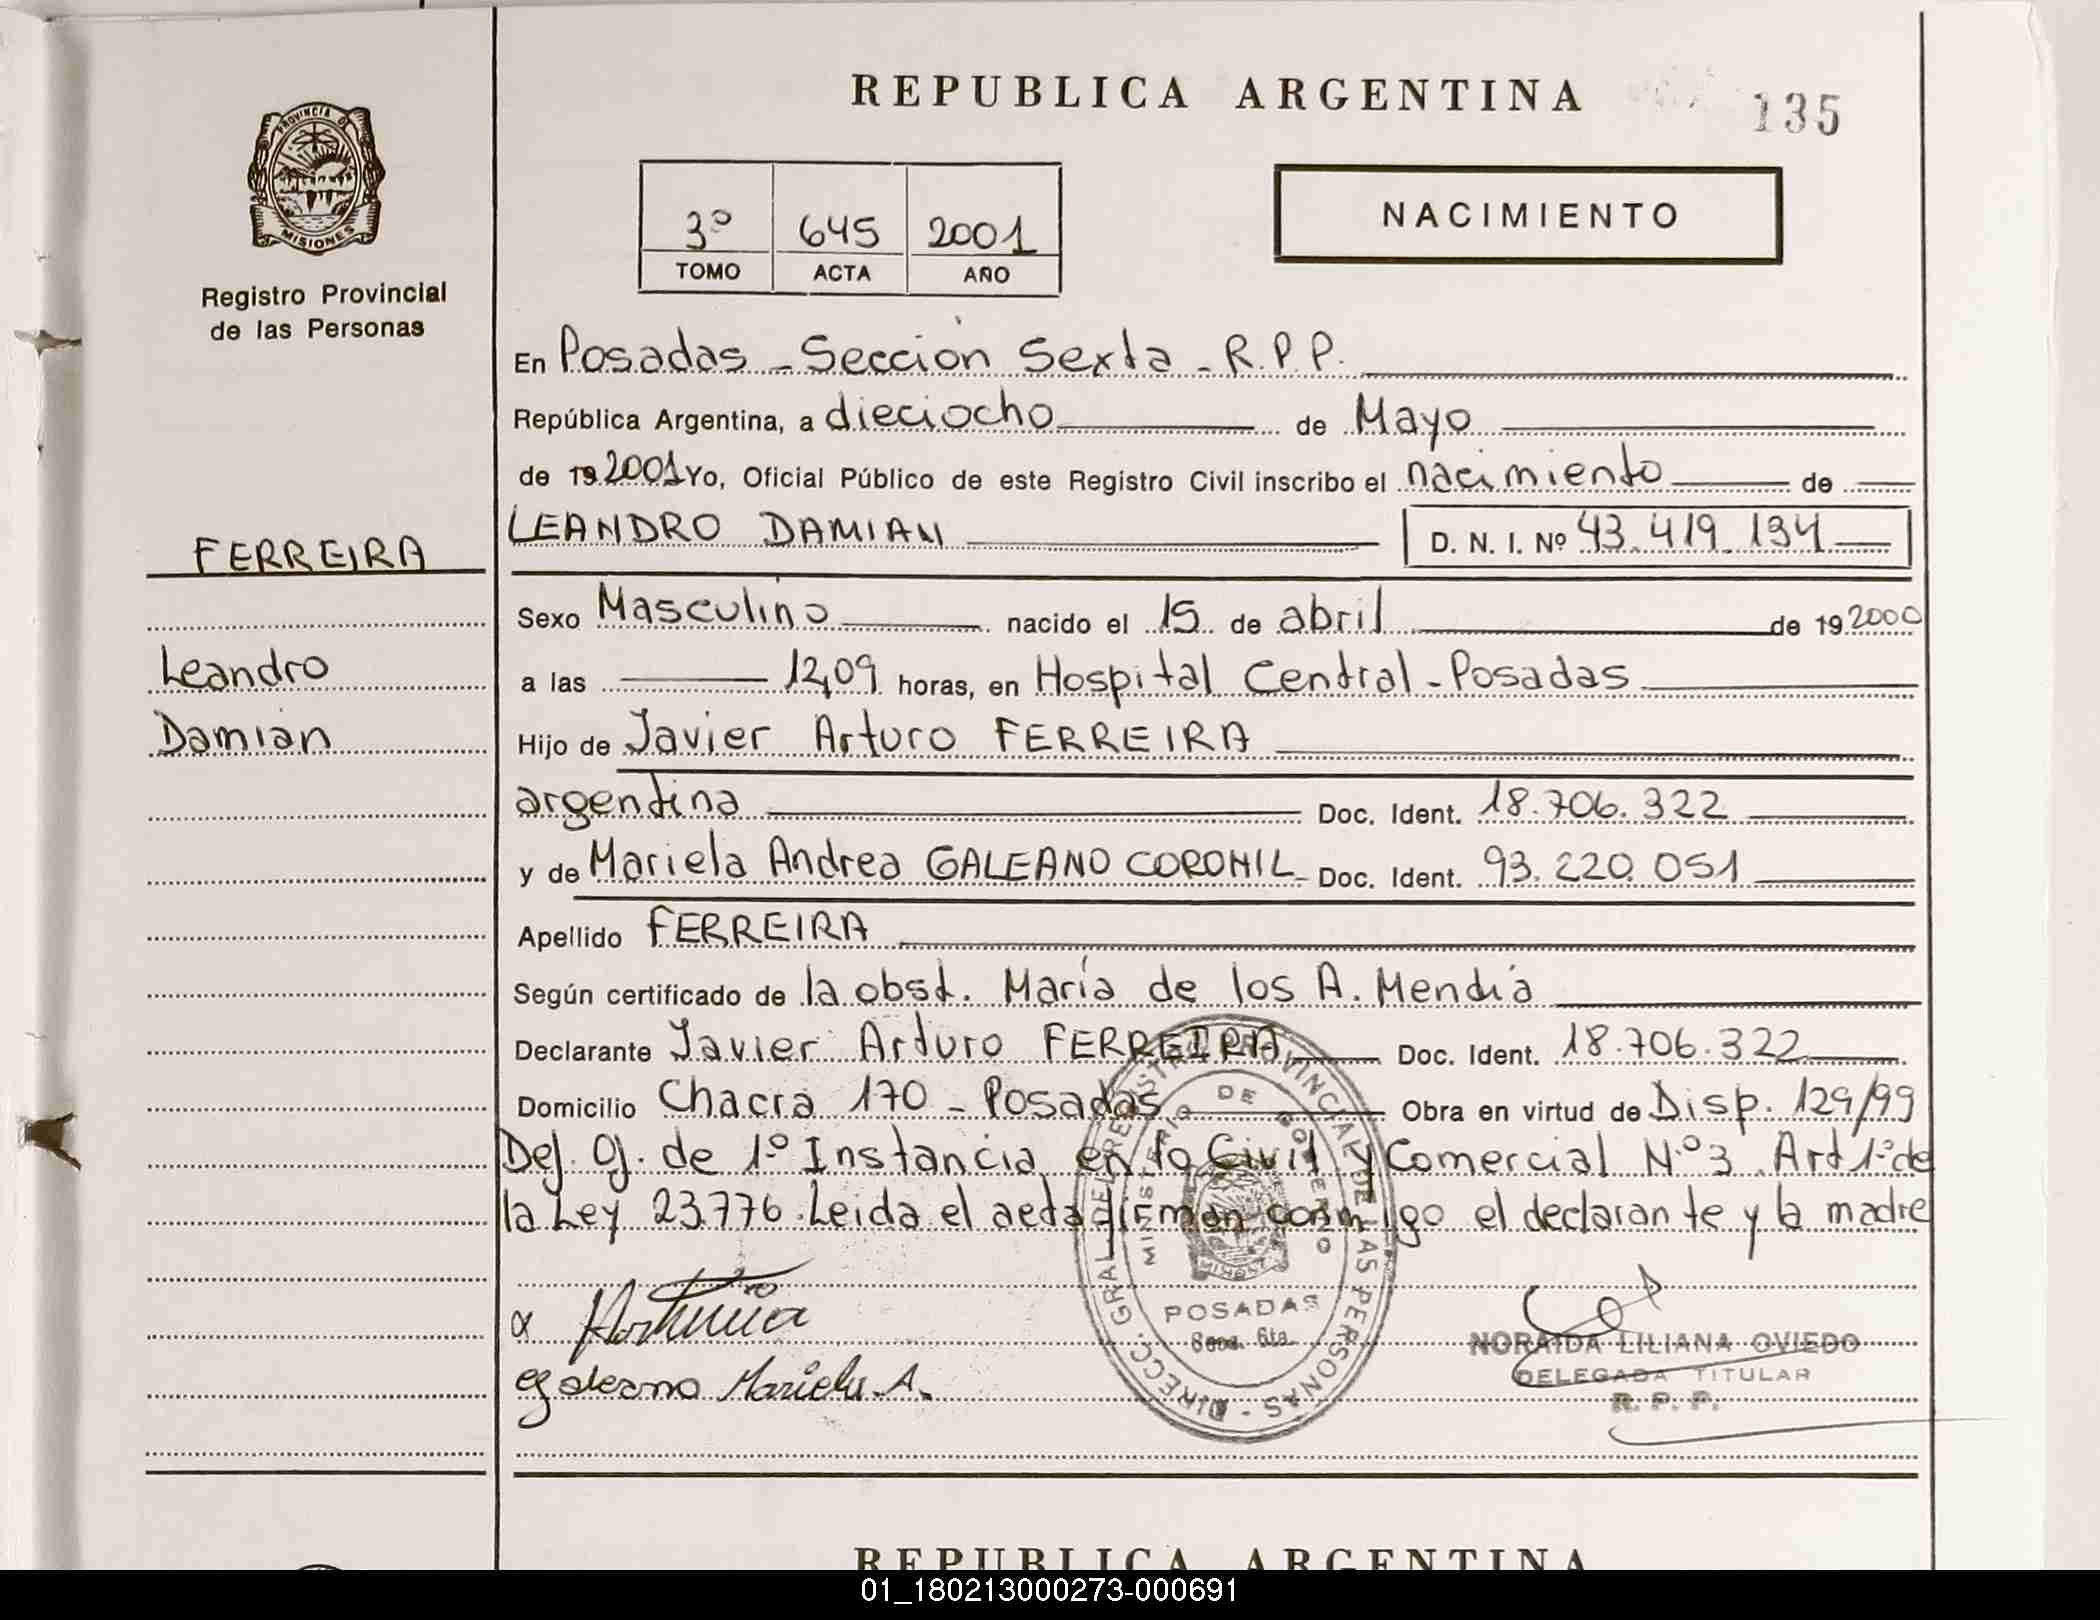 REPUBLICA ARGENTINA
135
PROVINCIA D
MISIONES
Registro Provincial
de las Personas
3º 645 2001
TOMO ACTA AÑO
NACIMIENTO
En Posadas - Sección Sexta - R.P.P.
República Argentina, a dieciocho de Mayo
de 19 2001 Yo, Oficial Público de este Registro Civil inscribo el nacimiento de
FERREIRA
LEANDRO DAMIAN D. N. I. Nº 43.419.134
Sexo Masculino nacido el 15 de abril de 19 2000
Leandro
a las 12,09 horas, en Hospital Central - Posadas
Damián
Hijo de Javier Arturo FERREIRA
argentina Doc. Ident. 18.706.322
y de Mariela Andrea GALEANO CORONIL Doc. Ident. 93.220.051
Apellido FERREIRA
Según certificado de la obst. María de los A. Mendía
Declarante Javier Arturo FERREIRA Doc. Ident. 18.706.322
Domicilio Chacra 170 - Posadas Obra en virtud de Disp. 129/99
Def. Of. de 1º Instancia en lo Civil y Comercial Nº 3 Art 1º de
la Ley 23.776. Leida el acta firman conmigo el declarante y la madre
DIRECC. GRAL DEL REGISTRO PROVINCIAL DE LAS PERSONAS
MINISTERIO DE GOBIERNO
POSADAS
Secc. 6ta.
Galeano Mariela A.
NORAIDA LILIANA OVIEDO
DELEGADA TITULAR
R. P. P.
REPUBLICA ARGENTINA
01_180213000273-000691